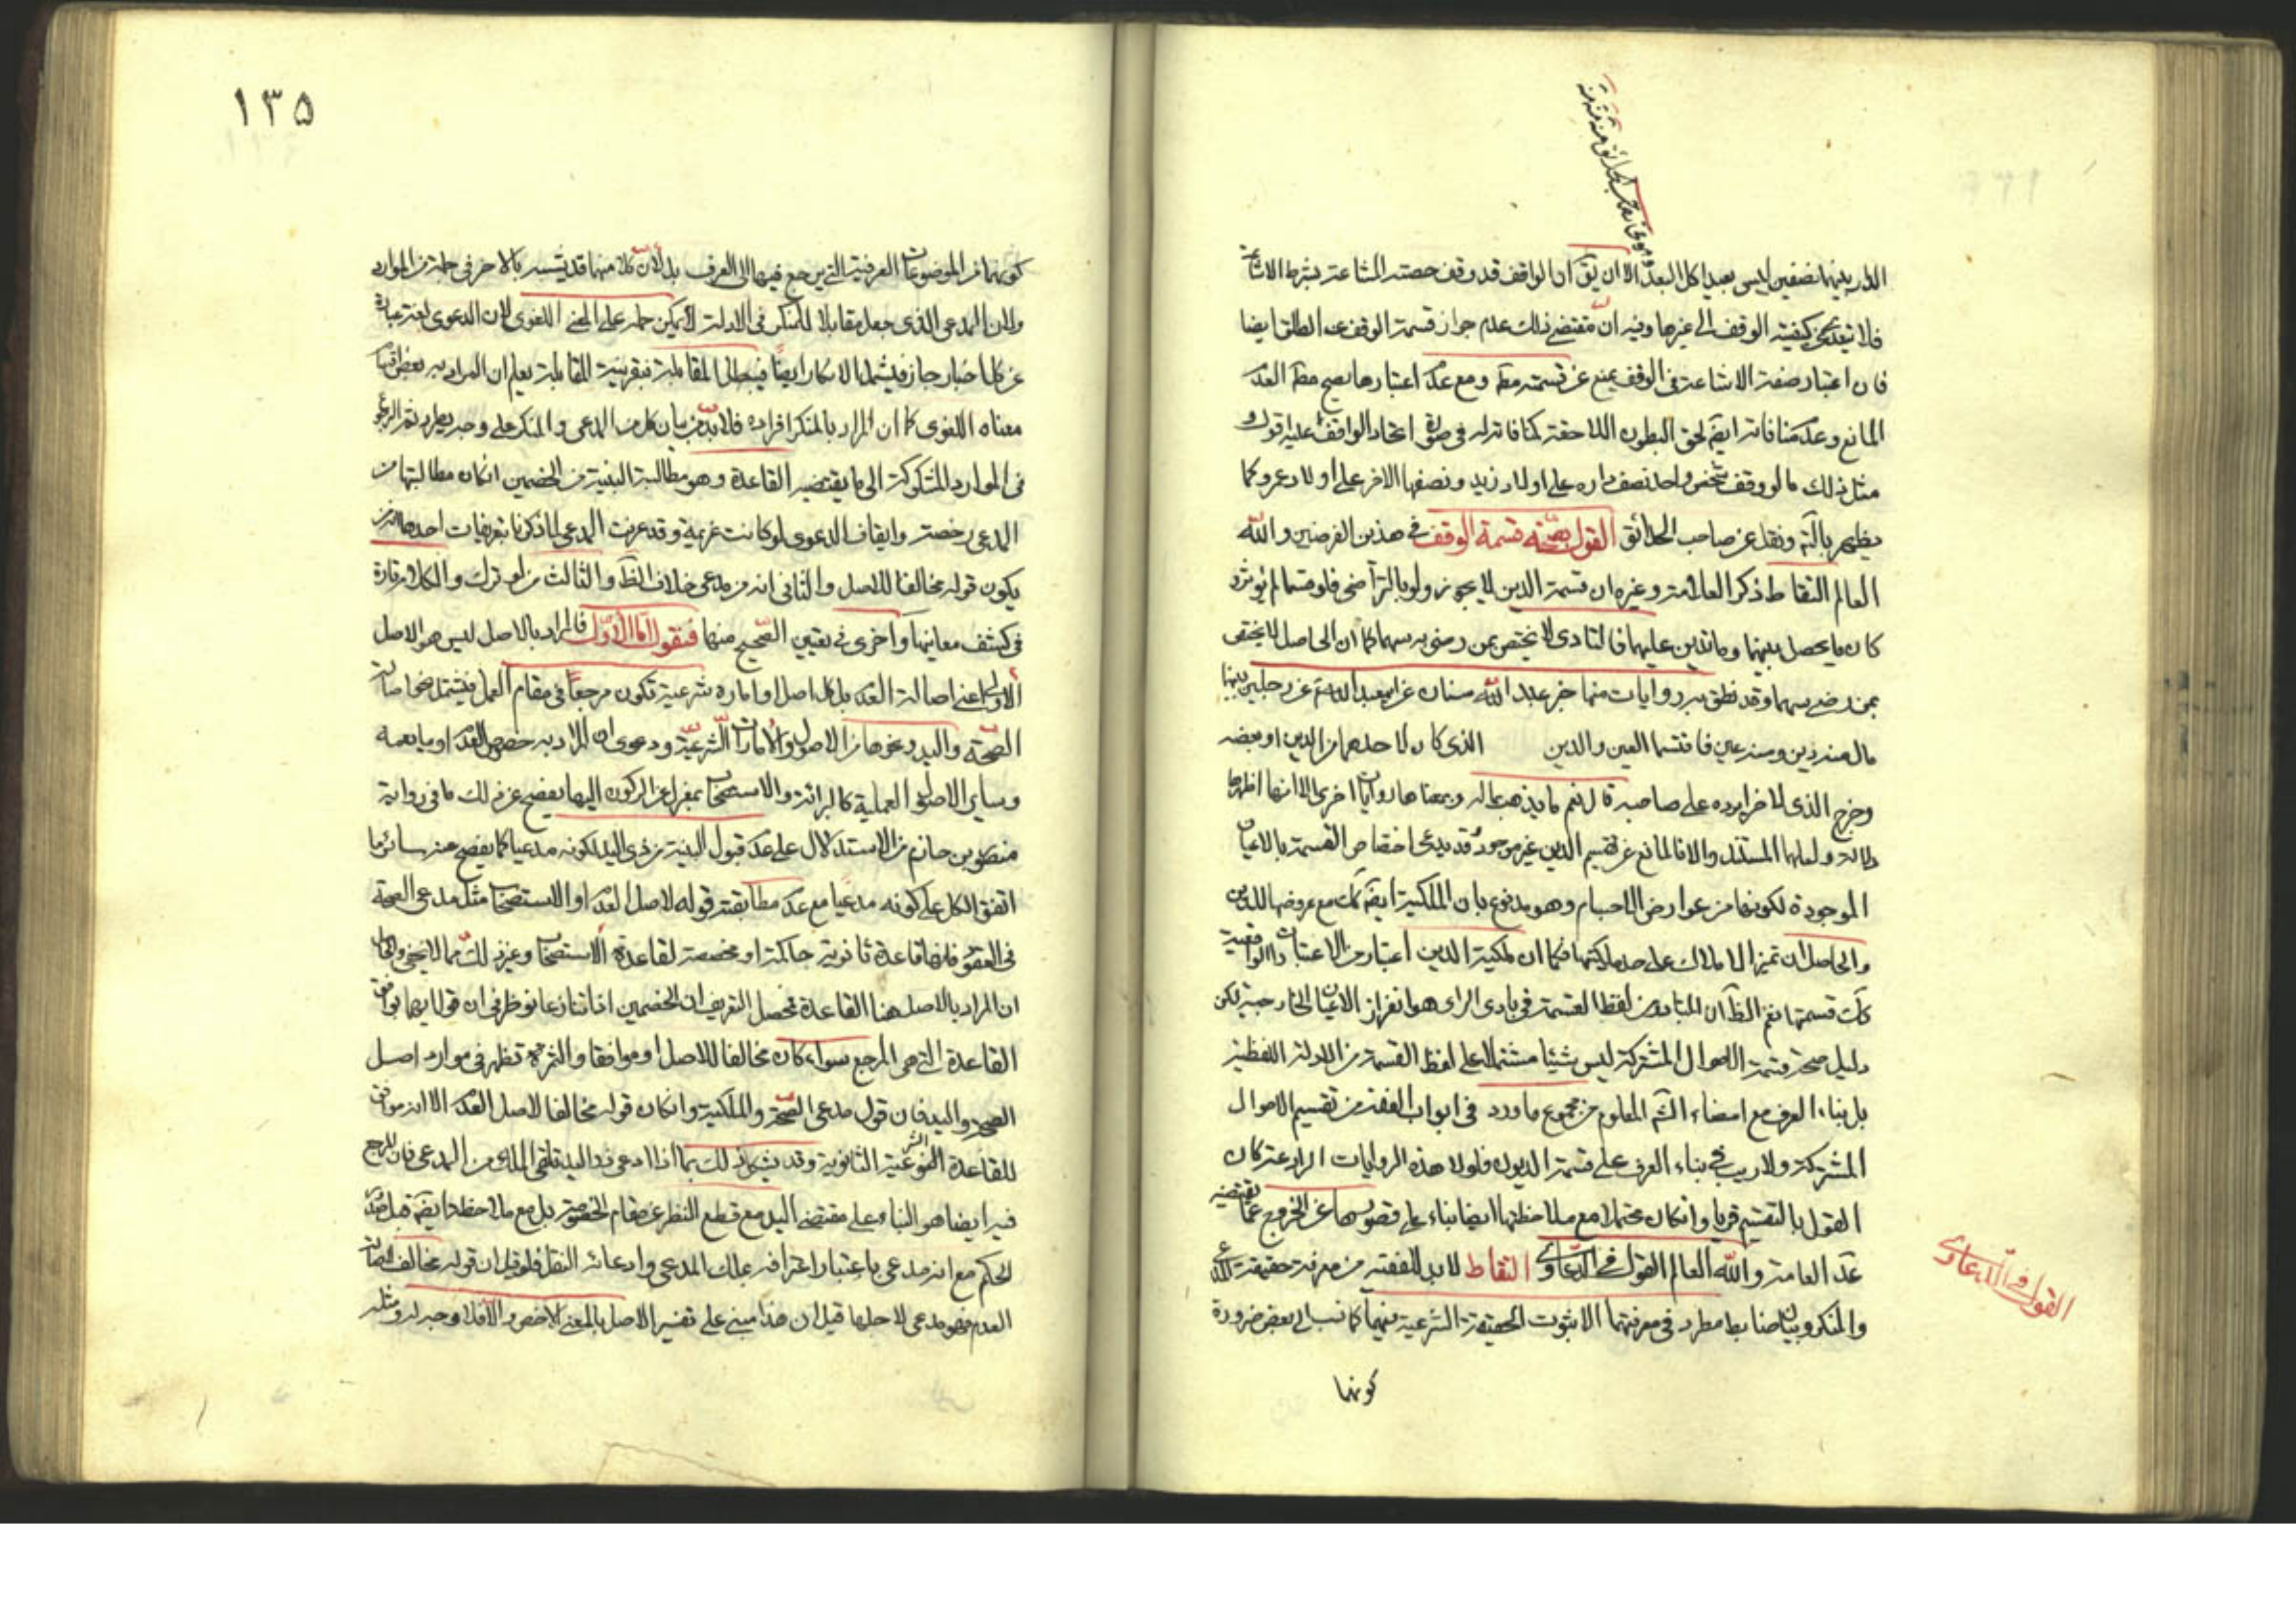 الدار بينهما نصفين ليس بعيدا كل البعد الا ان يق ان الواقف قد وقف حصته المشاعة بشرط الاشاعة
فلا يتعدى كيفية الوقف الى غيرها وفيه ان مقتضى ذلك عدم جواز قسمة الوقف عن الطلق ايضا
فان اعتبار صفة الاشاعة في الوقف يمنع عن قسمته مط ومع عدم اعتبارها يصح مط لعدم
المانع وعدم منافاته ايضا لحق البطون اللاحقة كمنافاته له في صورة اتحاد الواقف
مثل ذلك ما لو وقف شخص واحد نصف داره على اولاد زيد ونصفها الاخر على اولاد عمرو كما
يظهر بالتأمل ونقل عن صاحب الحدائق القول بصحة قسمة الوقف في هذين الفرضين والله
العالم التقاط ذكر العلامة وغيره ان قسمة الدين لا يجوز ولو بالتراضى فلو قسما لم يؤثر
كان ما يحصل بينهما وما عليهما فالتادى لا يختص بمن رضى بسهمه كما ان الحاصل لا يختص
بمن رضى بسهمه وقد نطق به روايات منها خبر عبد الله سنان عن ابيعبد الله ع عن رجلين بينهما
مال منه دين ومنه عين فاقتسما العين والدين الذى كان لاحدهما من الدين او بعضه
وخرج الذى للاخر ايرده على صاحبه قال نعم ما يذهب بماله وبمعناها روايات اخرى الا انها اظهرها
دلالة ولعلها المستند والا فالمانع عن تقسيم الدين غير موجود وقد يدعى اختصاص القسمة بالاعيان
الموجودة لكونها من عوارض الاجسام وهو مدفوع بان الملكية ايضا كك مع عروضها للدين
والحاصل ان تميز الاملاك على حد ملكيتها فكما ان ملكية الدين اعتبار من الاعتبارات الواقعية
كك قسمتها نعم الظ ان المتبادر من لفظ القسمة في بادى الراى هو افراز الاعيان الخارجية لكن
دليل صحة قسمة الاموال المشتركة ليس شيئا مشتملا على لفظ القسمة من الادلة اللفظية
بل بناء العرف مع امضاء الشم المعلوم من مجموع ما ورد في ابواب الفقه من تقسيم الاموال
المشتركة ولا ريب في بناء العرف على قسمة الديون فلولا هذه الروايات الرادعة كان
القول بالتقسيم قويا وانكان محتملا مع ملاحظتها ايضا بناء على قصورها عن الخروج عما يقتضيه
عدا العامة والله العالم القول في الدعاوى التقاط لا بد للفقيه من معرفة حقيقة المدعى
والمنكر وبيان ضابط مطرد في معرفتهما الا بثبوت الحقيقة الشرعية فيهما كما نسب الى بعض ضرورة
كونهما
القول في الدعاوى
١٣٥
كونهما من الموضوعات العرفية التى يرجع فيها الى العرف بل لان كلا منهما قد يشتبه بالاخر في جملة من الموارد
ولان المدعى الذى جعل مقابلا للمنكر في الادلة لا يمكن حمله على المعنى اللغوى لان الدعوى لغة عبارة
عن كل اخبار جازم فيشمل الانكار ايضا فيبطل المقابلة فبقرينة المقابلة يعلم ان المراد به بعض افراد
معناه اللغوى كما ان المراد بالمنكر افراده فلا بد من بيان كل من المدعى والمنكر على وجه يطرد ثم الرجوع
في الموارد المشكوكة الى ما يقتضيه القاعدة وهو مطالبة البينة من الخصمين انكان مطالبتها من
المدعى رخصة وايقاف الدعوى لو كانت عزيمة وقد عرفت المدعى لما ذكرنا بتعريفات احدها انه من
يكون قوله مخالفا للاصل والثانى انه من يدعى خلاف الظ والثالث من لو ترك والكلام تارة
في كشف معانيها واخرى في تعيين الصحيح منها فنقول اما الاول فالمراد بالاصل ليس هو الاصل
الاولى اعنى اصالة العدم بل كل اصل او امارة شرعية تكون مرجعا في مقام العمل فيشتمل نحو اصالة
الصحة واليد ونحوها من الاصول والامارات الشرعية ودعوى ان المراد به خصوص العدم او ما يعمه
وساير الاصول العملية كالبرائة والاستصحاب بمعزل عن الركون اليها يفصح عن ذلك ما في رواية
منصور بن حازم من الاستدلال على عدم قبول البينة من ذى اليد لكونه مدعيا كما يفصح عنه سائر ما
اتفق الكل على كونه مدعيا مع عدم مطابقة قوله لاصل العدم او الاستصحاب مثل مدعى الصحة
في العقود فانها قاعدة ثانوية حاكمة او مخصصة لقاعدة الاستصحاب وغير ذلك مما لا يخفى والحاصل
ان المراد بالاصل هنا القاعدة فمحصل التعريف ان الخصمين اذا تنازعا نوظر في ان قول ايهما يوافق
القاعدة التى هى المرجع سواء كان مخالفا للاصل او موافقا والثمرة تظهر في موارد اصل
الصحة واليد فان قول مدعى الصحة والملكية وانكان قوله مخالفا لاصل العدم الا انه موافق
للقاعدة الشرعية الثانوية وقد يشكل ذلك بما اذا ادعى ذو اليد تلقى الملك من المدعى فان المرجع
فيه ايضا هو البناء على مقتضى اليد مع قطع النظر عن مقام الخصومة بل مع ملاحظتها ايضا قبل
الحكم مع انه مدعى باعتبار اعترافه بملك المدعى وادعائه النقل فلو قيل ان قوله مخالف لاصالة
العدم فهو مدعى لاجلها قيل ان هذا مبنى على تفسير الاصل بالمعنى الاخص والا فلا وجه له ومثله